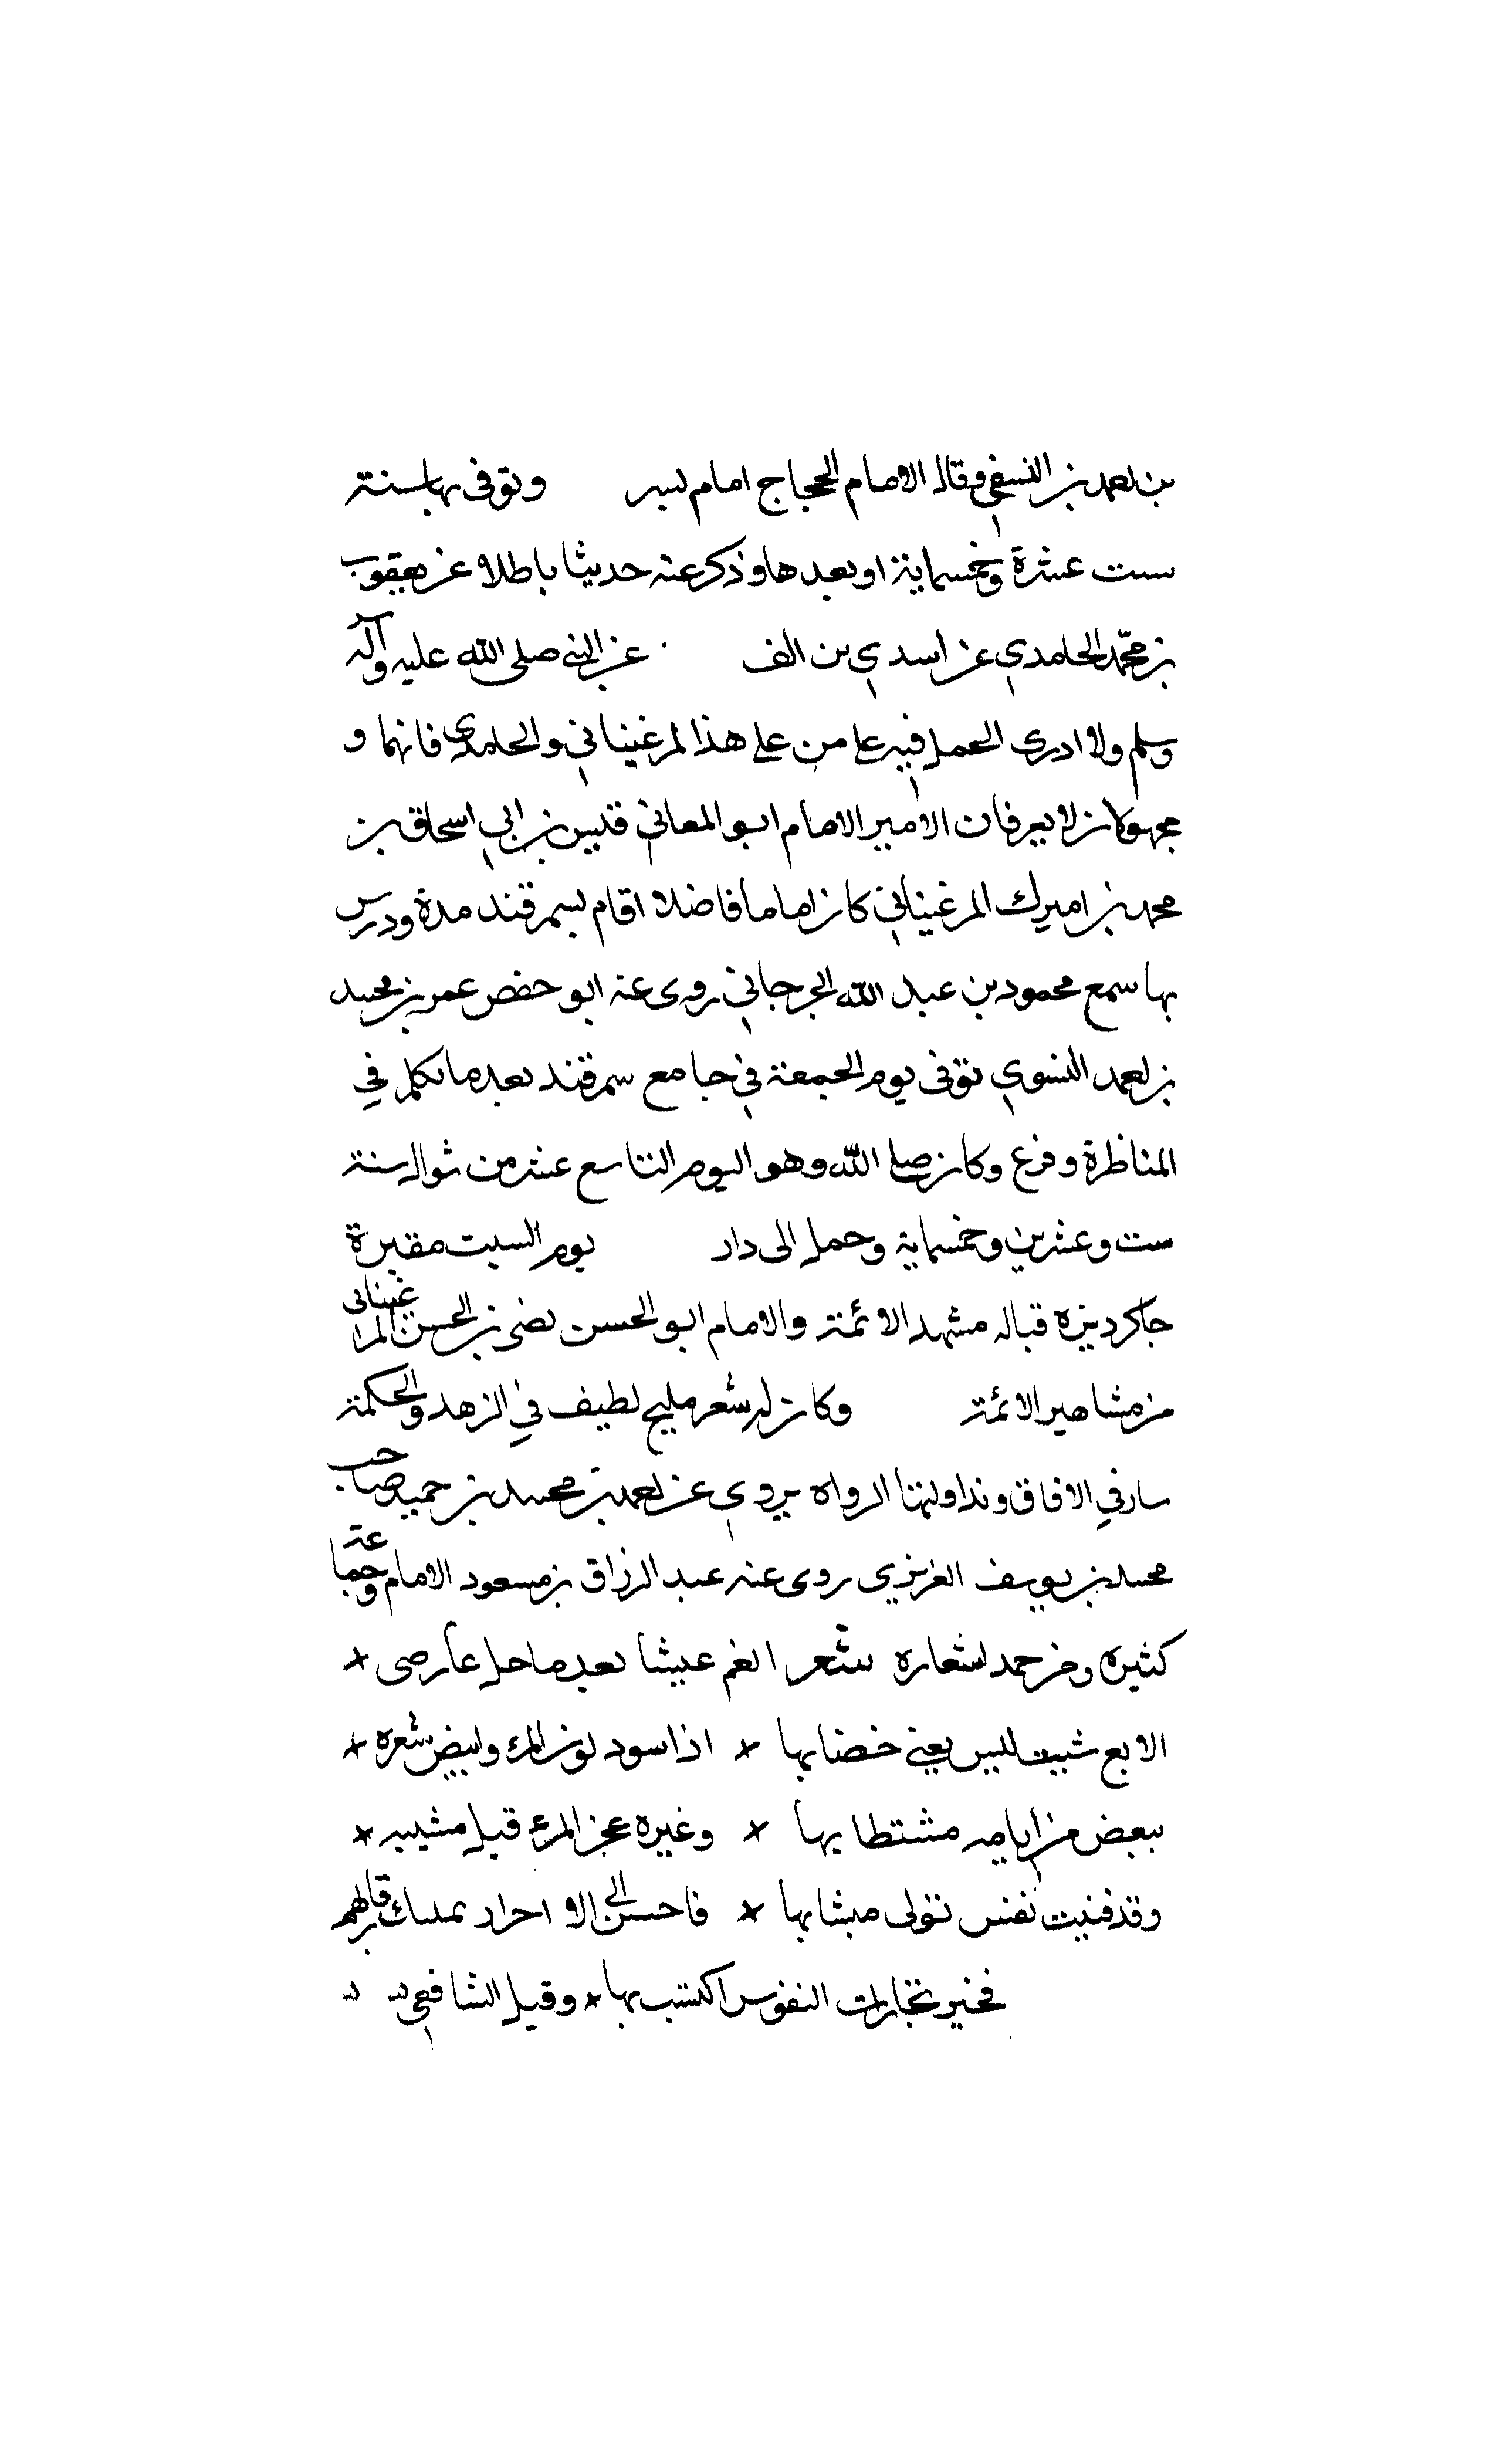 بن احمد بن النسفي وقال الامام الحجاج امام وتوفى بها سنة
ست عشرة وخمسماية او بعدها وذكر عنه حديثا باطلا عن يعقوب
بن محمد الحامدي عن اسدي بن الف عن النبي صلى الله عليه وآله
وسلم ولا ادرى الحمل فيه على من على هذا المرغيناني والحامدي فانهما و
مجهولان لا يعرفان الامير الامام ابو المعاني قيس بن ابي اسحاق بن
محمد بن اميرك المرغيناني كان اماما فاضلا اقام بسمرقند مدة ودرس
بها سمع محمود بن عبد الله الجرجاني روى عنه ابو حفص عمر بن محمد
بن احمد النسوي توفى يوم الجمعة في جامع سمرقند بعد ما تكلم في
المناظرة وفرغ وكان الله وهو اليوم التاسع عشر من شوال سنة
ست وعشرين وخمسماية وحمل الى دار يوم السبت مقبرة
جاكرديزه قبالة مشهد الائمة والامام ابو الحسن نضر بن الحسن المرغيناني
من مشاهير الائمة وكان له شعر مليح لطيف في الزهد والحكمة
سار في الافاق وتداولتها الرواه يروي عن احمد بن محمد بن حميد صاحب
محمد بن يوسف الغزيزي روى عنه عبد الرزاق بن مسعود الامام وجماعة
كثيره ومن اشعاره شعر انعم عيشا بعد ما حل عارضى *
يعنى خضابها * اذا اسود لون المرء وابيض شعره *
ببعض من ايامه * وغيره عجز المرء قبل مشيبه *
وقد فنيت نفس تولى * فاحسن الى الاحرار
فخير تجارات النفوس اكتسبها * وقيل الشافعي